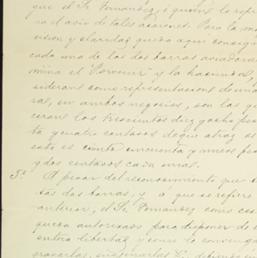 que el Sr. Fernandez, ó quien le repre
ra el uso de tales acciones. Para la ma
vision y claridad queda aqui consig
cada una de las dos barras aviadoras
mina el "Porvenir" y la hacienda,
sideran como representaciones de
ral, en ambos negocios, son las q
ceran los trescientos diez y ocho pesos
ta y cuatro centavos de que atras se
esto es ciento cincuenta y nueve pesos
y dos centavos cada una.
5ª A pesar del reconocimiento que
tas dos barras, y á que se refiere
anterior, el Sr. Fernandez como ces
queda autorizado para disponer de
entera libertad y como le convenga